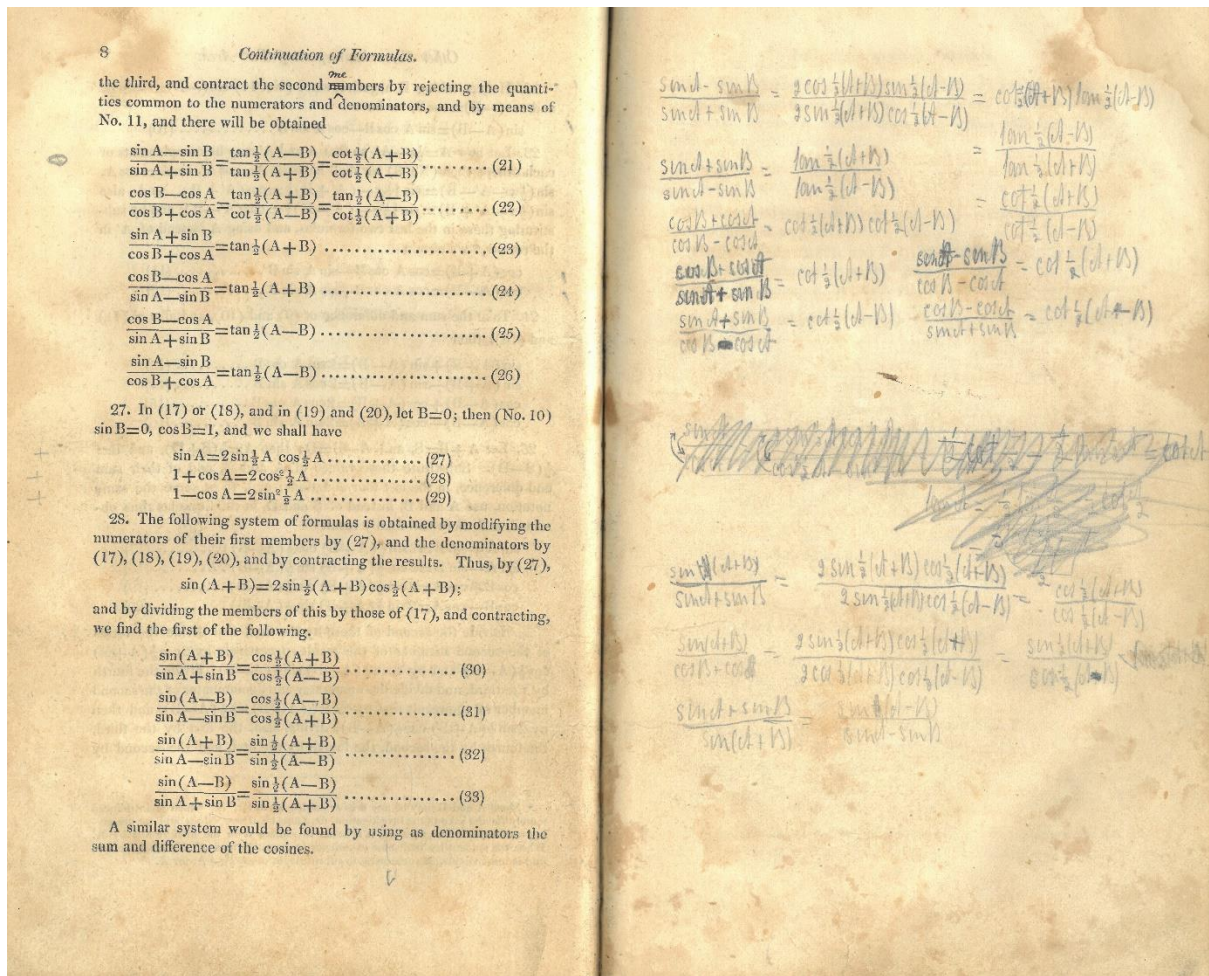 8 Continuation of Formulas.
the third, and contract the second members by rejecting the quanti-
me
ties common to the numerators and denominators, and by means of
No. 11, and there will be obtained
sin A—sin B/sin A+sin B=tan½(A—B)/tan½(A+B)=cot½(A+B)/cot½(A—B) ........(21)
cos B—cos A/cos B+cos A=tan½(A+B)/cot½(A—B)=tan½(A—B)/cot½(A+B) ........(22)
sin A+sin B/cos B+cos A=tan½(A+B) ........................(23)
cos B—cos A/sin A—sin B=tan½(A+B) ........................(24)
cos B—cos A/sin A+sin B=tan½(A—B) ........................(25)
sin A—sin B/cos B+cos A=tan½(A—B) ........................(26)
27. In (17) or (18), and in (19) and (20), let B=0; then (No. 10)
sin B=0, cos B=1, and we shall have
sin A=2sin½A cos½A..............(27)
1+cos A=2cos²½A ................(28)
1—cos A=2sin²½A ................(29)
28. The following system of formulas is obtained by modifying the
numerators of their first members by (27), and the denominators by
(17), (18), (19), (20), and by contracting the results. Thus, by (27),
sin(A+B)=2sin½(A+B)cos½(A+B);
and by dividing the members of this by those of (17), and contracting,
we find the first of the following.
sin(A+B)/sin A+sin B=cos½(A+B)/cos½(A—B) ................(30)
sin(A—B)/sin A—sin B=cos½(A—B)/cos½(A+B) ................(31)
sin(A+B)/sin A—sin B=sin½(A+B)/sin½(A—B) ................(32)
sin(A—B)/sin A+sin B=sin½(A—B)/sin½(A+B) ................(33)
A similar system would be found by using as denominators the
sum and difference of the cosines.
sin A - sin B/sin A + sin B = 2cos½(A+B)sin½(A-B)/2sin½(A+B)cos½(A-B) = cot½(A+B) tan½(A-B)
= tan½(A-B)/tan½(A+B)
sin A + sin B/sin A - sin B = tan½(A+B)/tan½(A-B)
= cot½(A+B)/cot½(A-B)
cos B + cos A/cos B - cos A = cot½(A+B) cot½(A-B)
cos B + cos A/sin A + sin B = cot½(A+B) sin A - sin B/cos B - cos A = cot½(A+B)
sin A + sin B/cos B - cos A = cot½(A-B) cos B - cos A/sin A + sin B = cot½
= cot A
sin(A+B)/sin A + sin B = 2sin½(A+B)cos½(A+B)/2sin½(A+B)cos½(A-B) = cos½(A+B)/cos½(A-B)
sin(A+B)/cos B + cos A = 2sin½(A+B)cos½(A+B)/2cos½(A+B)cos½(A-B) = sin½(A+B)/cos½(A-B)
sin A + sin B/sin(A+B) = sin(A-B)/sin A - sin B